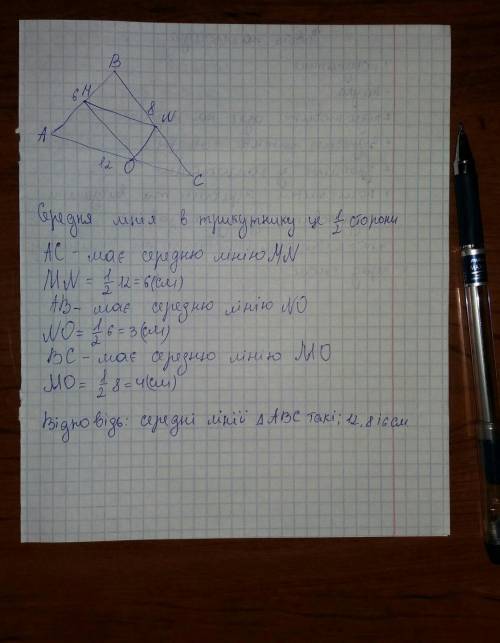 B
6 M
8 N
A
12 O
C
Середня лінія в трикутнику це 1/2 сторони
AC - має середню лінію MN
MN = 1/2 12 = 6 (см)
AB - має середню лінію NO
NO = 1/2 6 = 3 (см)
BC - має середню лінію MO
MO = 1/2 8 = 4 (см)
Відповідь: середні лінії Δ ABC такі; 12, 8 і 6 см